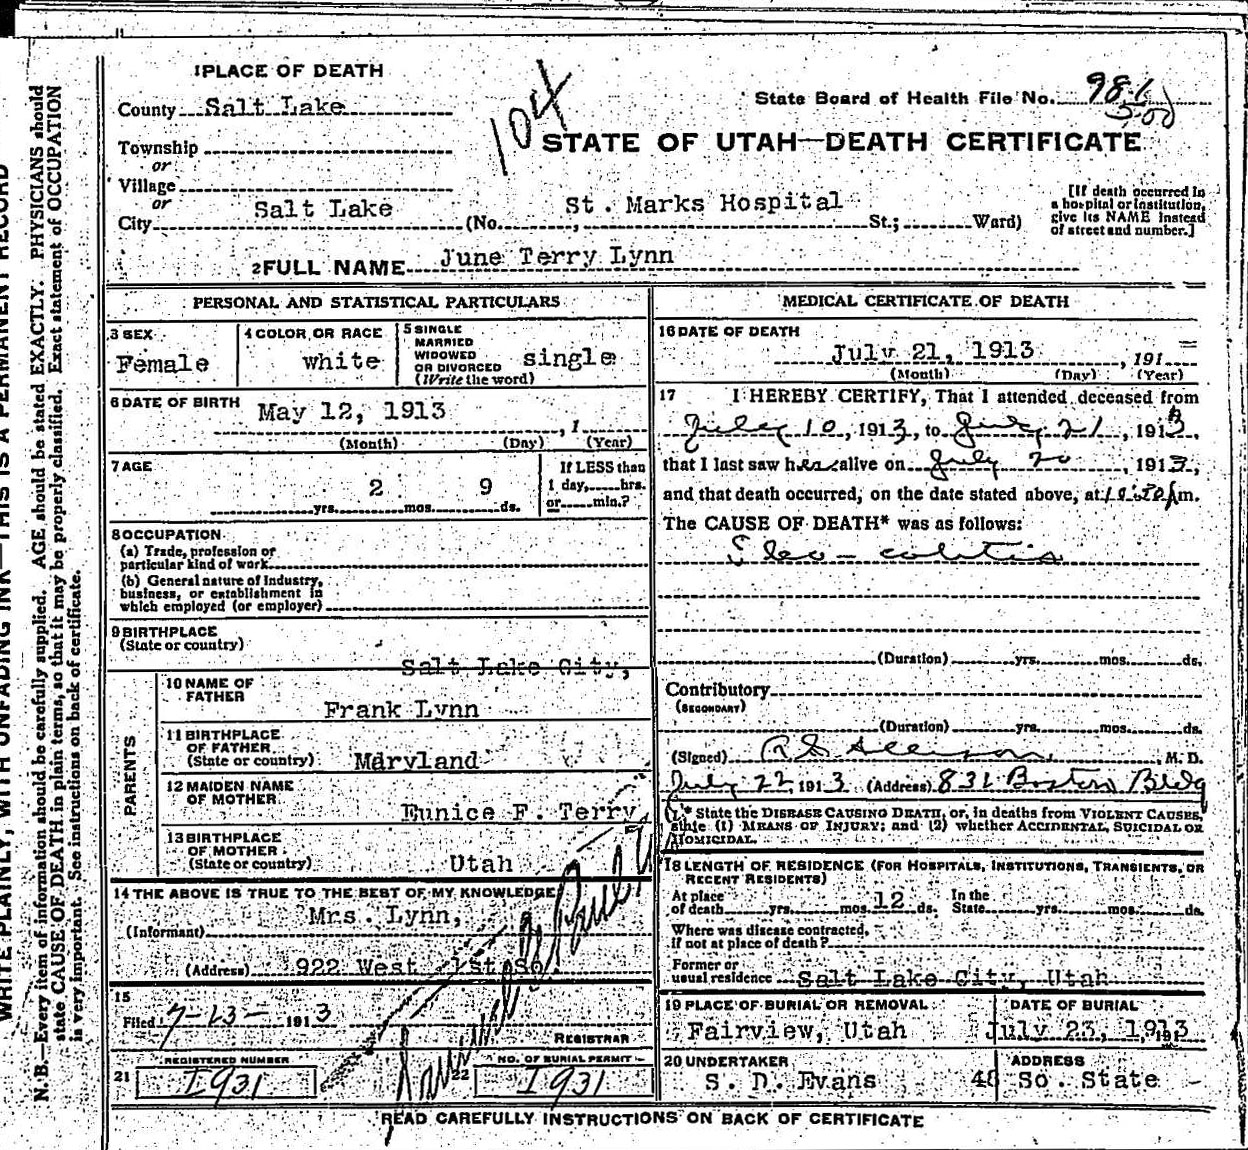 1 PLACE OF DEATH
County Salt Lake
104
State Board of Health File No. 981
500
STATE OF UTAH—DEATH CERTIFICATE
Township
or
Village
or
City Salt Lake (No. , St. Marks Hospital St.; Ward)
[If death occurred in
a hospital or institution,
give its NAME instead
of street and number.]
2 FULL NAME June Terry Lynn
PERSONAL AND STATISTICAL PARTICULARS
3 SEX
Female
4 COLOR OR RACE
white
5 SINGLE
MARRIED
WIDOWED
OR DIVORCED
(Write the word)
single
6 DATE OF BIRTH
May 12, 1913 , 1
(Month) (Day) (Year)
7 AGE
2 9
yrs. mos. ds.
If LESS than
1 day, hrs.
or min.?
8 OCCUPATION
(a) Trade, profession or
particular kind of work
(b) General nature of industry,
business, or establishment in
which employed (or employer)
9 BIRTHPLACE
(State or country)
Salt Lake City,
PARENTS
10 NAME OF
FATHER
Frank Lynn
11 BIRTHPLACE
OF FATHER
(State or country) Maryland
12 MAIDEN NAME
OF MOTHER
Eunice F. Terry
13 BIRTHPLACE
OF MOTHER
(State or country) Utah
14 THE ABOVE IS TRUE TO THE BEST OF MY KNOWLEDGE
(Informant) Mrs. Lynn,
(Address) 922 West 1st So
15
Filed 7-23- 1913
REGISTRAR
21 REGISTERED NUMBER
1931
22 NO. OF BURIAL PERMIT
1931
MEDICAL CERTIFICATE OF DEATH
16 DATE OF DEATH
July 21, 1913 , 191
(Month) (Day) (Year)
17 I HEREBY CERTIFY, That I attended deceased from
July 10, 1913, to July 21, 1913,
that I last saw her alive on July 20, 1913,
and that death occurred, on the date stated above, at m.
The CAUSE OF DEATH* was as follows:
Ileo-colitis
(Duration) yrs. mos. ds.
Contributory
(SECONDARY)
(Duration) yrs. mos. ds.
(Signed) , M. D.
July 22, 1913 (Address) 831 Boston Bldg
* State the DISEASE CAUSING DEATH, or, in deaths from VIOLENT CAUSES,
state (1) MEANS OF INJURY; and (2) whether ACCIDENTAL, SUICIDAL OR
HOMICIDAL.
18 LENGTH OF RESIDENCE (FOR HOSPITALS, INSTITUTIONS, TRANSIENTS, OR
RECENT RESIDENTS)
At place
of death yrs. mos. 12 ds. In the
State yrs. mos. ds.
Where was disease contracted,
if not at place of death?
Former or
usual residence Salt Lake City, Utah
19 PLACE OF BURIAL OR REMOVAL
Fairview, Utah
DATE OF BURIAL
July 23, 1913
20 UNDERTAKER
S. D. Evans
ADDRESS
48 So. State
READ CAREFULLY INSTRUCTIONS ON BACK OF CERTIFICATE
WRITE PLAINLY, WITH UNFADING INK—THIS IS A PERMANENT RECORD
N. B.—Every item of information should be carefully supplied. AGE should be stated EXACTLY. PHYSICIANS should
state CAUSE OF DEATH in plain terms, so that it may be properly classified. Exact statement of OCCUPATION
is very important. See instructions on back of certificate.